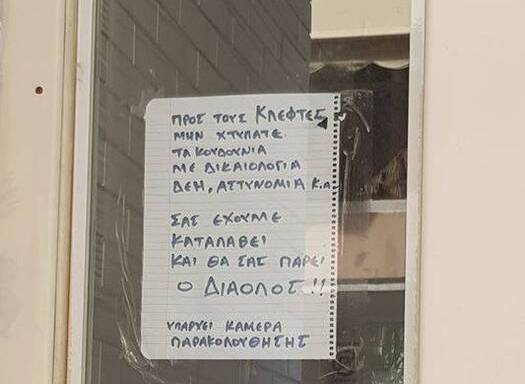 ΠΡΟΣ ΤΟΥΣ ΚΛΕΦΤΕΣ
ΜΗΝ ΧΤΥΠΑΤΕ
ΤΑ ΚΟΥΔΟΥΝΙΑ
ΜΕ ΔΙΚΑΙΟΛΟΓΙΑ
ΔΕΗ, ΑΣΤΥΝΟΜΙΑ Κ.α.
ΣΑΣ ΕΧΟΥΜΕ
ΚΑΤΑΛΑΒΕΙ
ΚΑΙ ΘΑ ΣΑΣ ΠΑΡΕΙ
Ο ΔΙΑΟΛΟΣ!!
ΥΠΑΡΧΕΙ ΚΑΜΕΡΑ
ΠΑΡΑΚΟΛΟΥΘΗΣΗΣ